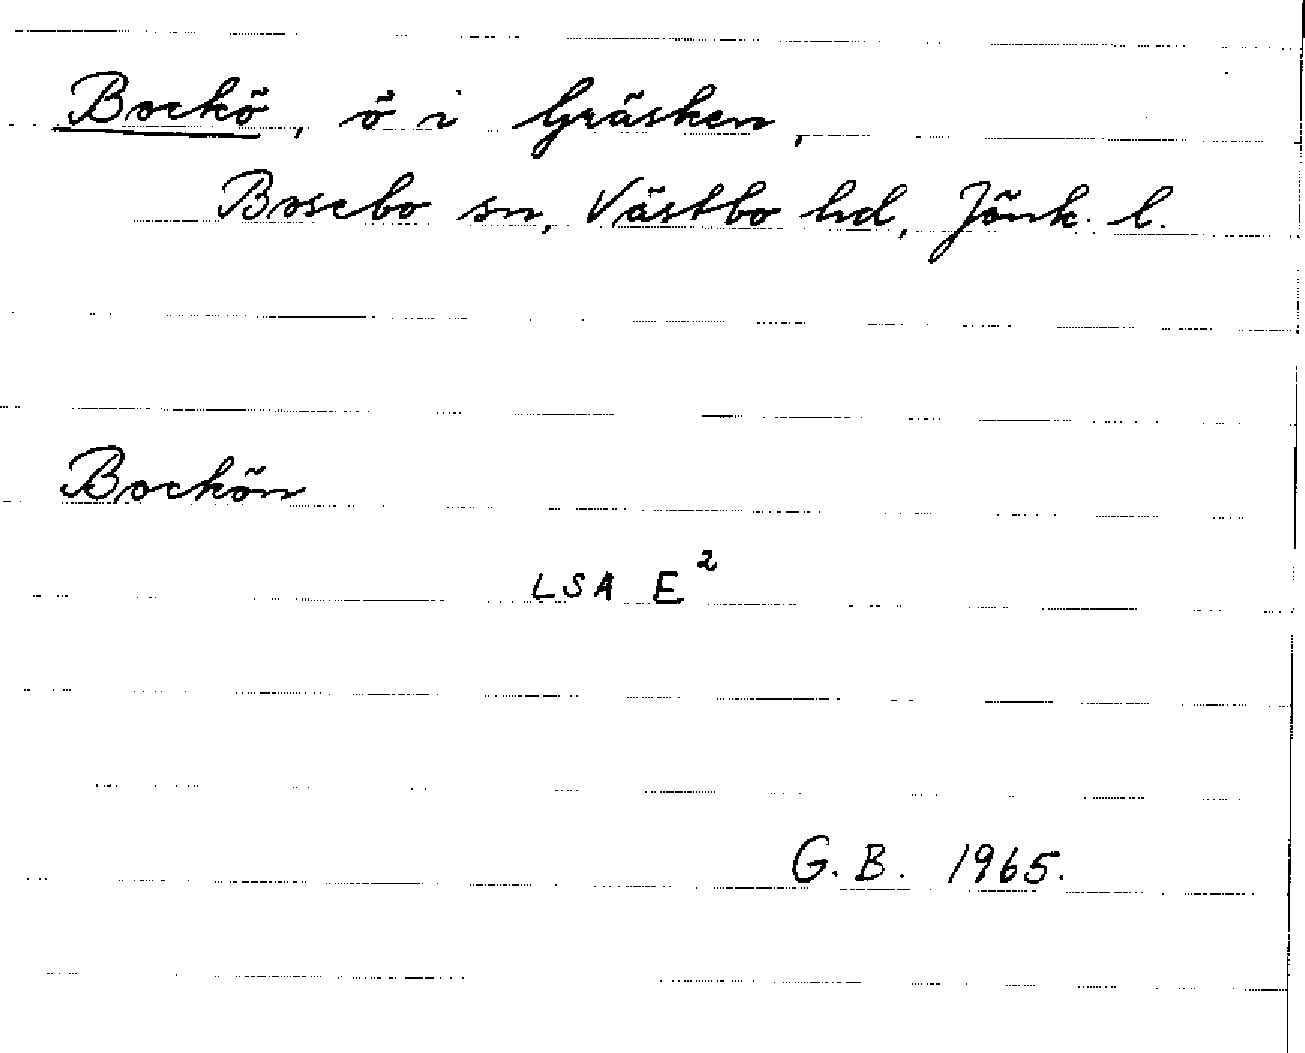 Bockö, ö i Gräsken,
Bosebo sn, Västbo hd, Jönk. l.
Bockön
LSA E²
G. B. 1965.